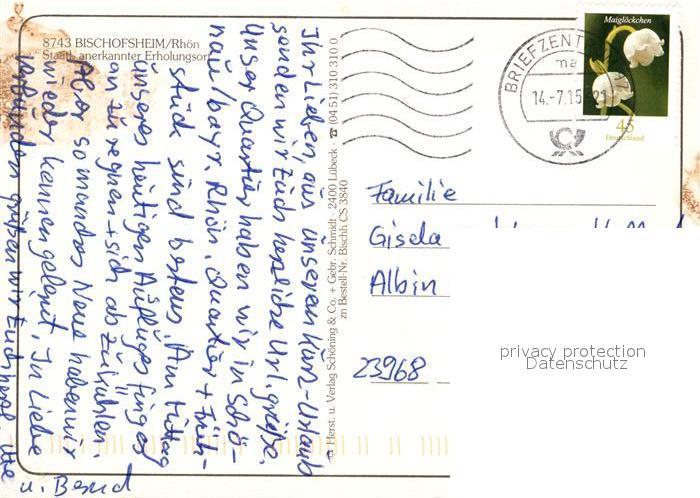 8743 BISCHOFSHEIM/Rhön
Staatl. anerkannter Erholungsort
Ihr Lieben, aus unserem Kurz-Urlaub
senden wir Euch herzliche Url. grüße.
Unser Quartier haben wir in Schö-
nau/bayr. Rhön. Quartier + Früh-
stück sind bestens. Am Mittag
unseres heutigen Ausfluges fing es
an zu regnen + sich abzukühlen.
Aber so manches Neue haben wir
wieder kennengelernt. In Liebe
verbunden grüßen wir Euch herzl.
u. Bernd
Herst. u. Verlag Schöning & Co. + Gebr. Schmidt · 2400 Lübeck · ☎ (04 51) 310 310 0
zu Bestell-Nr. Bischh CS 3840
BRIEFZENT
ma
14.-7.15-21
Maiglöckchen
45
Deutschland
Familie
Gisela
Albin
23968
privacy protection
Datenschutz